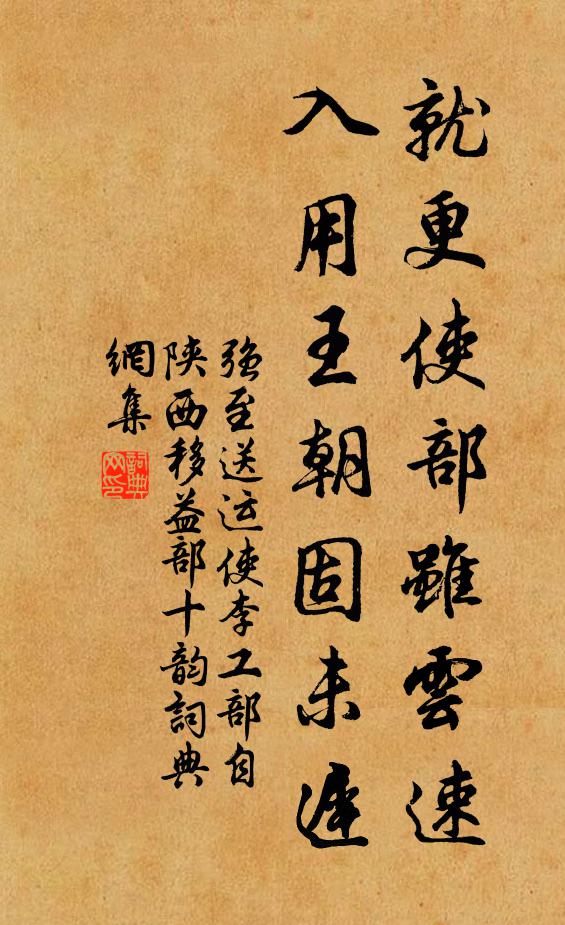 就更使部雖雲速
入用王朝固未遲
強至送运使李工部自
陝西移益部十韵詞典
網集
詞典
网印